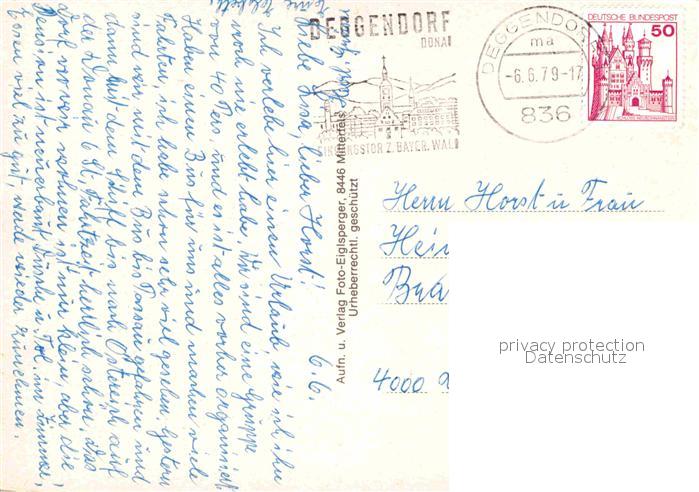 6.6.
Liebe Lisa, lieber Horst!
Ich verlebe hier einen Urlaub wie ich ihn
noch nie erlebt habe. Wir sind eine Gruppe
von 40 Pers. und es ist alles vorher organisiert
Haben einen Bus für uns und machen viele
Fahrten, ich habe schon sehr viel gesehen. Gestern
sind wir mit dem Bus bis Passau gefahren und
dann mit dem Schiff bis nach Östereich auf
der Donau 6 St. Fahrtzeit herrlich schön. Das
Dorf wo wir wohnen ist nur klein, aber die
Pension ist neuerbaut Dusche u. Tol. im Zimmer,
Essen viel zu gut, werde wieder zunehmen.
Aufn. u. Verlag Foto-Eiglsperger, 8446 Mitterfels
Urheberrechtl. geschützt
DEGGENDORF
DONAU
Z. BAYER. WALD
DEGGENDORF
ma
-6.6.79-17
836
DEUTSCHE BUNDESPOST
50
SCHLOSS NEUSCHWANSTEIN
Herrn Horst u Frau
Hein
4000
privacy protection
Datenschutz